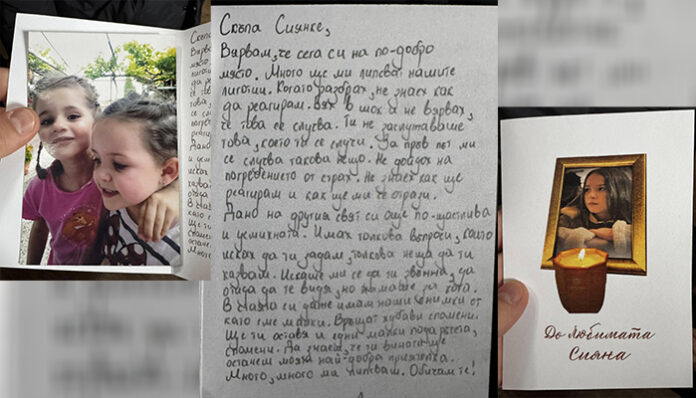 Скъпа Сиянке,
Вярвам, че сега си на по-добро
място. Много ще ми липсват нашите
лиготии. Когато разбрах, не знаех как
да реагирам. Бях в шок и не вярвах,
че това се случва. Ти не заслужаваше
това, което ти се случи. За пръв път ми
се случва такова нещо. Не дойдох на
погребението от страх. Не знаех как ще
реагирам и как ще ми се отрази.
Дано на другия свят си още по-щастлива
и усмихната. Имах толкова въпроси, които
исках да ти задам, толкова неща да ти
казвам. Искаше ми се да ти звънна, да
дойда да те видя, но нямаше за кога.
В стаята си даже имам наши снимки от
като сме малки. Връщат хубави спомени.
Ще ти оставя и едни малки подаръчета,
спомени. Да знаеш, че ти винаги ще
останеш моята най-добра приятелка.
Много, много ми липсваш. Обичам те!
До любимата
Сияна